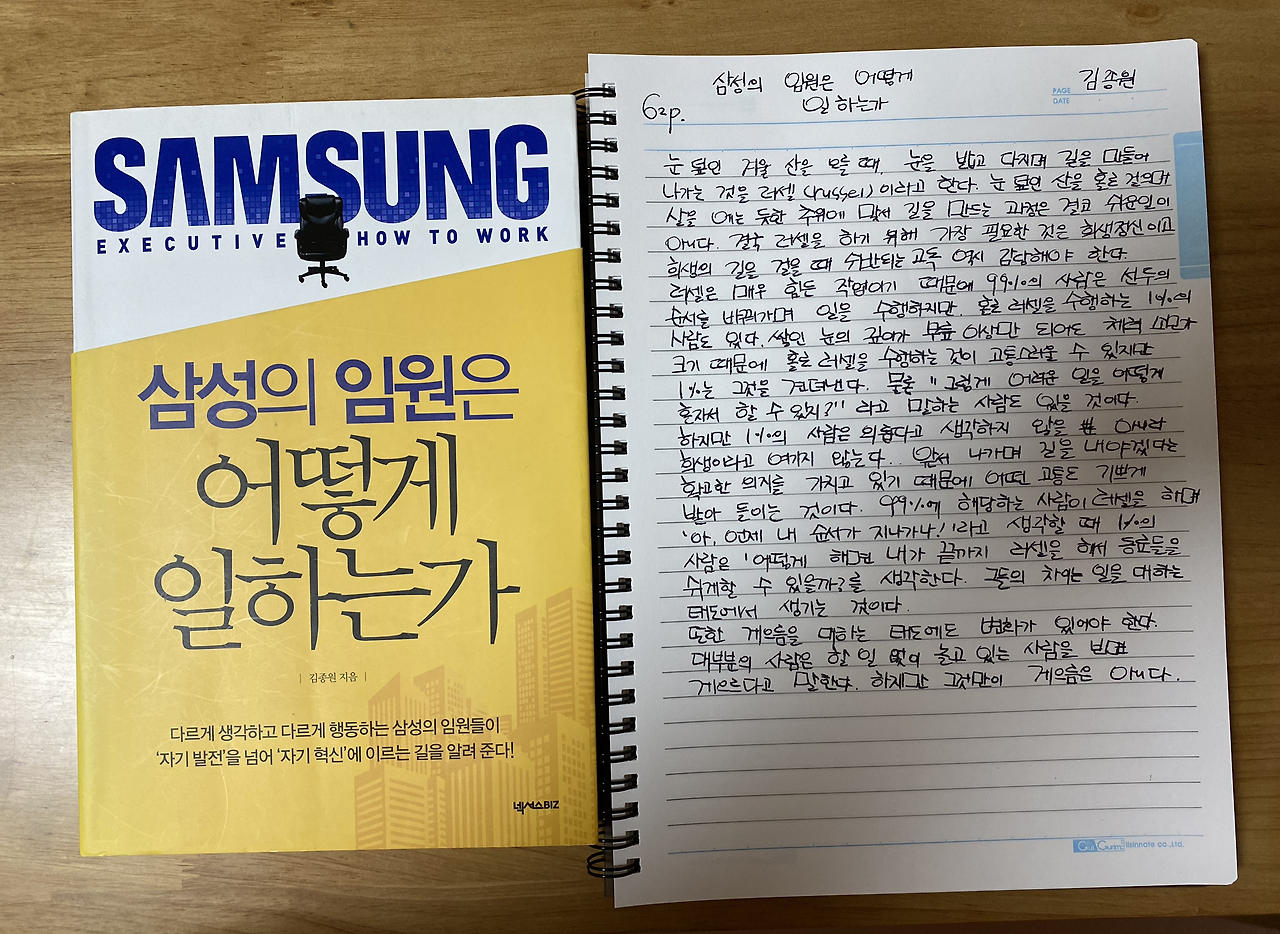 SAMSUNG
EXECUTIVE HOW TO WORK
삼성의 임원은
어떻게
일하는가
김종원 지음
다르게 생각하고 다르게 행동하는 삼성의 임원들이
'자기 발전'을 넘어 '자기 혁신'에 이르는 길을 알려 준다!
넥서스BIZ
삼성의 임원은 어떻게
일하는가
김종원
PAGE
DATE
62p.
눈 덮인 겨울 산을 오를 때, 눈을 밟고 다지며 길을 만들어
나가는 것을 러셀(russel)이라고 한다. 눈 덮인 산을 홀로 걸으며
살을 에는 듯한 추위에 맞서 길을 만드는 과정은 결코 쉬운일이
아니다. 결국 러셀을 하기 위해 가장 필요한 것은 희생정신이고
희생의 길을 걸을 때 수반되는 고독 역시 감당해야 한다.
러셀은 매우 힘든 작업이기 때문에 99%의 사람은 선두의
순서를 바꿔가며 일을 수행하지만, 홀로 러셀을 수행하는 1%의
사람도 있다. 쌓인 눈의 깊이가 무릎 이상만 되어도 체력 소모가
크기 때문에 홀로 러셀을 수행하는 것이 고통스러울 수 있지만
1%는 그것을 견뎌낸다. 물론 "그렇게 어려운 일을 어떻게
혼자서 할 수 있지?" 라고 말하는 사람도 있을 것이다.
하지만 1%의 사람은 외롭다고 생각하지 않을 뿐 아니라
희생이라고 여기지 않는다.. 앞서 나가며 길을 내야겠다는
확고한 의지를 가지고 있기 때문에 어떤 고통도 기쁘게
받아 들이는 것이다. 99%에 해당하는 사람이 러셀을 하며
'아, 언제 내 순서가 지나가나!'라고 생각할 때 1%의
사람은 '어떻게 하면 내가 끝까지 러셀을 해서 동료들을
쉬게할 수 있을까?를 생각한다. 그들의 차이는 일을 대하는
태도에서 생기는 것이다.
또한 게으름을 대하는 태도에도 변화가 있어야 한다.
대부분의 사람은 할 일 없이 놀고 있는 사람을 보며
게으르다고 말한다. 하지만 그것만이 게으름은 아니다.